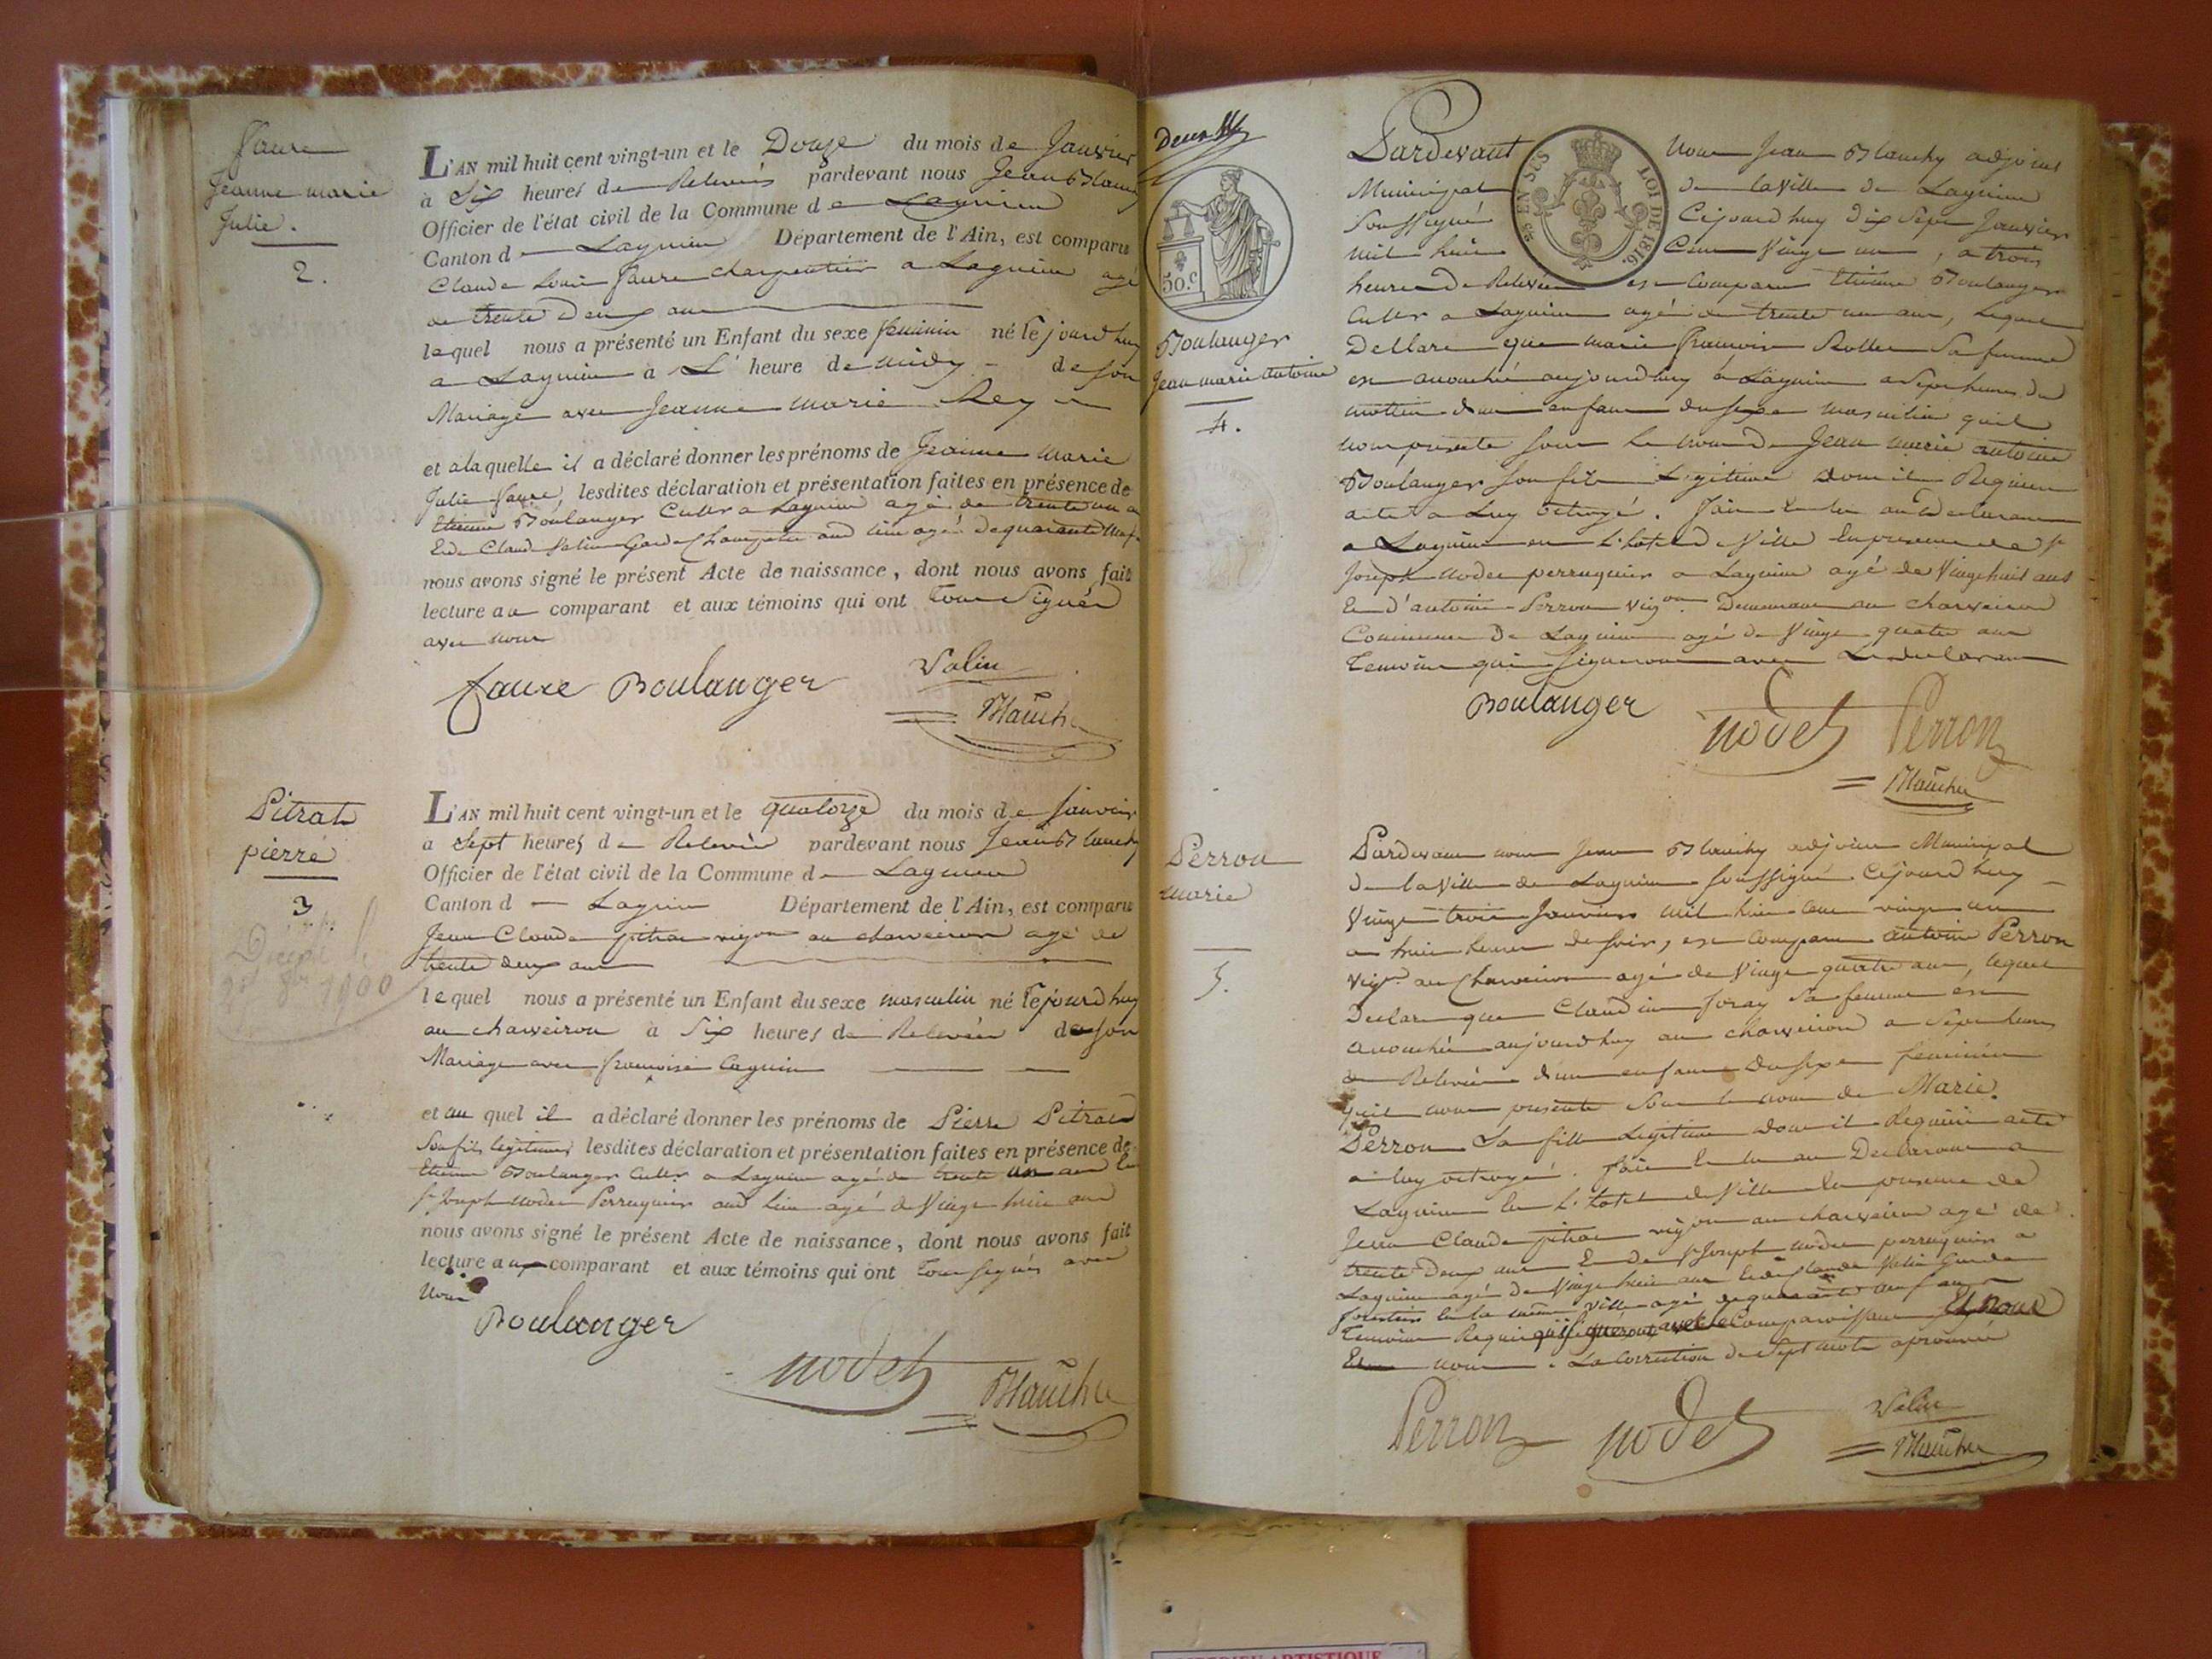 Faure
Jeanne marie
Julie.
2.
L'AN mil huit cent vingt-un et le Douze du mois de Janvier
à Six heures de Relevée pardevant nous Jean Blanchy
Officier de l'état civil de la Commune de Lagnieu
Canton d Lagnieu Département de l'Ain, est comparu
Claude Louis Faure charpentier a Lagnieu agé
de trente Deux ans
lequel nous a présenté un Enfant du sexe feminin né le jourdhuy
a Lagnieu à L' heure de midy de son
Mariage avec Jeanne marie Rey
et a laquelle il a déclaré donner les prénoms de Jeanne Marie
Julie Faure, lesdites déclaration et présentation faites en présence de
Etienne Boulanger Cultr a Lagnieu agé de trente un an
Et de Claude Valin Garde Champetre aud lieu agé de quarante neuf
nous avons signé le présent Acte de naissance, dont nous avons fait
lecture au comparant et aux témoins qui ont tous Signés
avec nous
faure Boulanger Valin
Blanchy
Pitrat
pierre
3
Décédé le
1900
L'AN mil huit cent vingt-un et le quatorze du mois de Janvier
a Sept heures de Relevée pardevant nous Jean Blanchy
Officier de l'état civil de la Commune de Lagnieu
Canton d Lagnieu Département de l'Ain, est comparu
Jean Claude pitrat vigon au charveiron agé de
trente deux ans
lequel nous a présenté un Enfant du sexe masculin né le jourdhuy
au charveiron à Six heures de Relevée de son
Mariage avec françoise Cagnin
et au quel il a déclaré donner les prénoms de Pierre Pitrat
Son fils legitime lesdites déclaration et présentation faites en présence de
Etienne Boulanger Cultr a Lagnieu agé de trente un ans Et
Sr Joseph Nodet Perruquier aud lieu agé de Vingt huit ans
nous avons signé le présent Acte de naissance, dont nous avons fait
lecture aux comparant et aux témoins qui ont tous signés avec
Nous
Boulanger
nodet Blanchy
Deux
50.C
Boulanger
Jean marie antoine
4.
25 EN SUS LOI DE 1816.
Pardevant Nous Jean Blanchy adjoint
Municipal de la Ville de Lagnieu
Soussigné Cejourdhuy dix Sept Janvier
mil huit Cent Vingt un, a trois
heures De Relevée est Comparu Etienne Boulanger
Cultr a Lagnieu agé de trente un ans, Lequel
Declare que marie françoise Rollet Sa femme
est accouchée aujourdhuy a Lagnieu a Sept heures du
mattin d'un enfant du sexe masculin quil
nous presente sous le nom de Jean marie antoine
Boulanger son fils Légitime dont il Requiert
acte a Luy octroyé. fait Et lu au Declarant
a Lagnieu en L'hotel de Ville En presence de Sr
Joseph nodet perruquier a Lagnieu agé de Vingt huit ans
Et d'antoine Perron vigon. Demeurant au charveiron
Commune De Lagnieu agé de Vingt quatre ans
Temoins qui signeront avec Le declarant
Boulanger nodet Perron
Blanchy
Perron
marie
5.
Pardevant nous Jean Blanchy adjoint Municipal
de la Ville de Lagnieu soussigné Cejourdhuy
Vingt trois Janvier mil huit cent vingt un
a huit heures du soir, est Comparu antoine Perron
vigon au Charveiron agé de Vingt quatre ans, lequel
Declare que Claudine foray Sa femme est
accouchée aujourdhuy au charveiron a Sept heures
de Relevée d'un enfant du sexe feminin
quil nous presente sous le nom de Marie
Perron Sa fille Legitime dont il Requiert acte
a luy octroyé. fait Et lu au Declarant a
Lagnieu En L'hotel de Ville En presence de
Jean Claude pitrat vigon au charveiron agé de
trente Deux ans Et de Sr Joseph nodet perruquier a
Lagnieu agé de Vingt huit ans Et de Claude Valin Garde
forestier En la même Ville agé de quarante neuf ans
Temoins Requis qui signeront avec le Comparoissant Et nous
nous. La Correction de Sept mots aprouvée
Perron nodet Valin
Blanchy
ARTISTIQUE